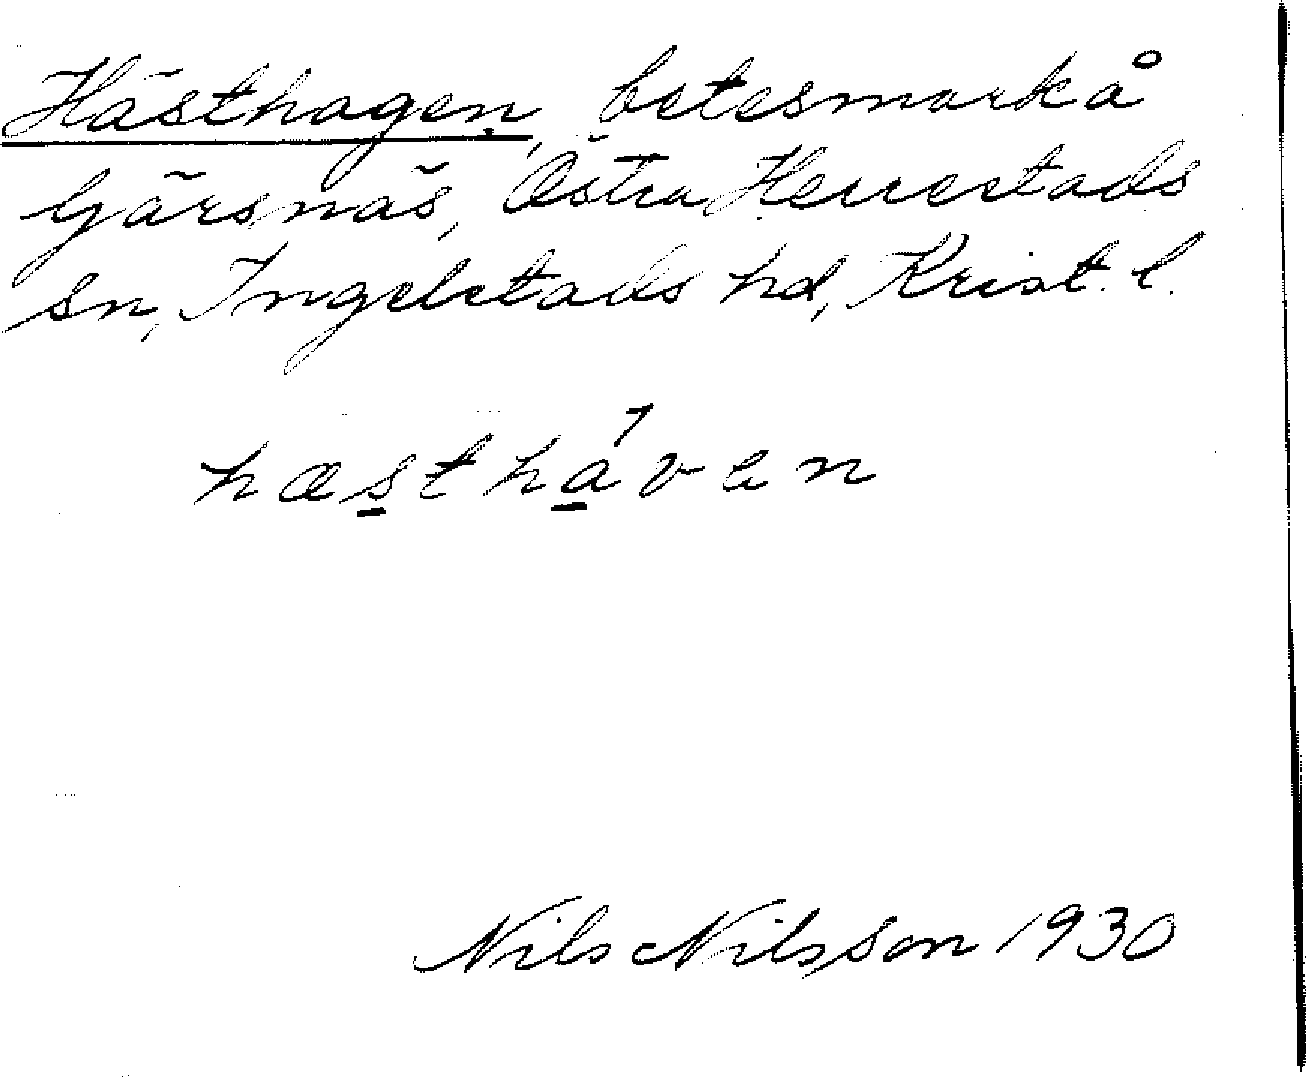 Hästhagen, betesmark å
Gärsnäs, Östra Herrestads
sn, Ingelstads hd, Krist. l.
hæstháven
Nils Nilsson 1930